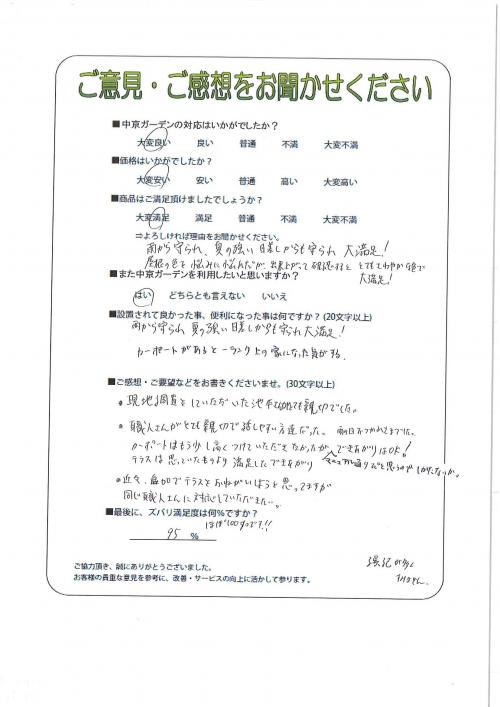 ご意見・ご感想をお聞かせください
■中京ガーデンの対応はいかがでしたか？
大変良い 良い 普通 不満 大変不満
■価格はいかがでしたか？
大変安い 安い 普通 高い 大変高い
■商品はご満足頂けましたでしょうか？
大変満足 満足 普通 不満 大変不満
⇒よろしければ理由をお聞かせください。
雨から守られ、夏の強い日差しからも守られ 大満足！
屋根の色を悩みに悩んだが、出来上がって確認すると とてもさわやかな色で
大満足！
■また中京ガーデンを利用したいと思いますか？
はい どちらとも言えない いいえ
■設置されて良かった事、便利になった事は何ですか？(20文字以上)
雨から守られ 夏の強い日差しからも守られ大満足！
カーポートがあると一ランク上の家になった気がする。
■ご感想・ご要望などをお書きくださいませ。(30文字以上)
• 現地調査をしていただいた池本 とても親切でした。
• 職人さんがとても親切で話しやすい方達だった。
カーポートはもう少し高くつけていただきたかったが、できあがりはOK！
テラスは思っていたもより満足したできあがり
• 近々、追加でテラスとおねがいしようと思ってますが
同じ職人さんに対応していただきたい。
■最後に、ズバリ満足度は何%ですか？
95 % ほぼ100%です!!
ご協力頂き、誠にありがとうございました。
お客様の貴重な意見を参考に、改善・サービスの向上に活かして参ります。
誤記が多く
すみません。